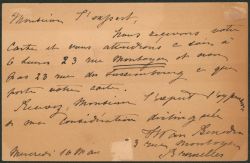 Monsieur l'expert,
Nous recevons votre
carte et vous attendrons ce soir à
6 heures 23 rue Montoyer et non
pas 23 rue du Luxembourg ce que
porte votre carte.
Recevez, Monsieur l'expert l'expres
de ma considération distinguée
23 rue Montoyer
Mercredi 16 Mai Bruxelles